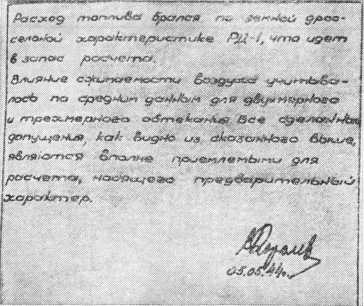 Расход топлива брался по земной дрос-
сельной характеристике РД-1, что идет
в запас расчета.
Влияние сжимаемости воздуха учитыва-
лось по средним данным для двухмерного
и трехмерного обтекания. Все сделанные
допущения, как видно из сказанного выше,
являются вполне приемлемыми для
расчета, носящего предварительный
характер.
Королев
05.05.44г.